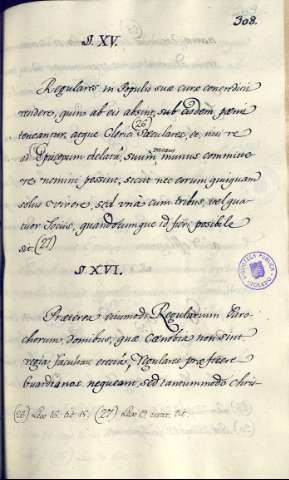 308.
§. XV.
Regulares in Populis suæ curæ concreditis
residere, quin ab eis absent, sub eisdem pœnis
teneantur, aeque Clerici (26) Sæculares, et, nisi re
ad Episcopum delata, suum munus committe
re nemini possint, sicut nec eorum quisquam
solus vivere, sed una cum tribus, vel qua
tuor Sociis, quandocumque id fieri posibile
sit (27)
§. XVI.
Præterea ejusmodi Regularium Paro
chorum domibus, quæ Cœnobia non sint
regia facultate erecta, Regulares præficere
Guardianos nequeant, sed tantummodo Chris-
(26) Lex 16. tit. 15. (27) Lex
BIBLIOTECA PUBLICA
TOLEDO